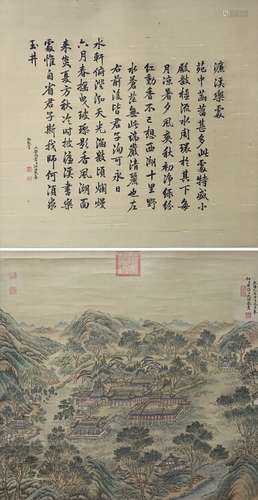 濂溪樂處
苑中菡萏甚多此處特盛小
殿數楹流水周環於其下每
月涼暑夕風爽秋初淨綠粉
紅動香不已想西湖十里野
水蒼茫無此端嚴清麗也左
右前後皆君子洵可永日
水軒俯澄泓天光涵數頃爛熳
六月春搖曳玻璃影香風湖面
來炎夏方秋冷時披濂溪書樂
處惟自省君子斯我師何須求
玉井